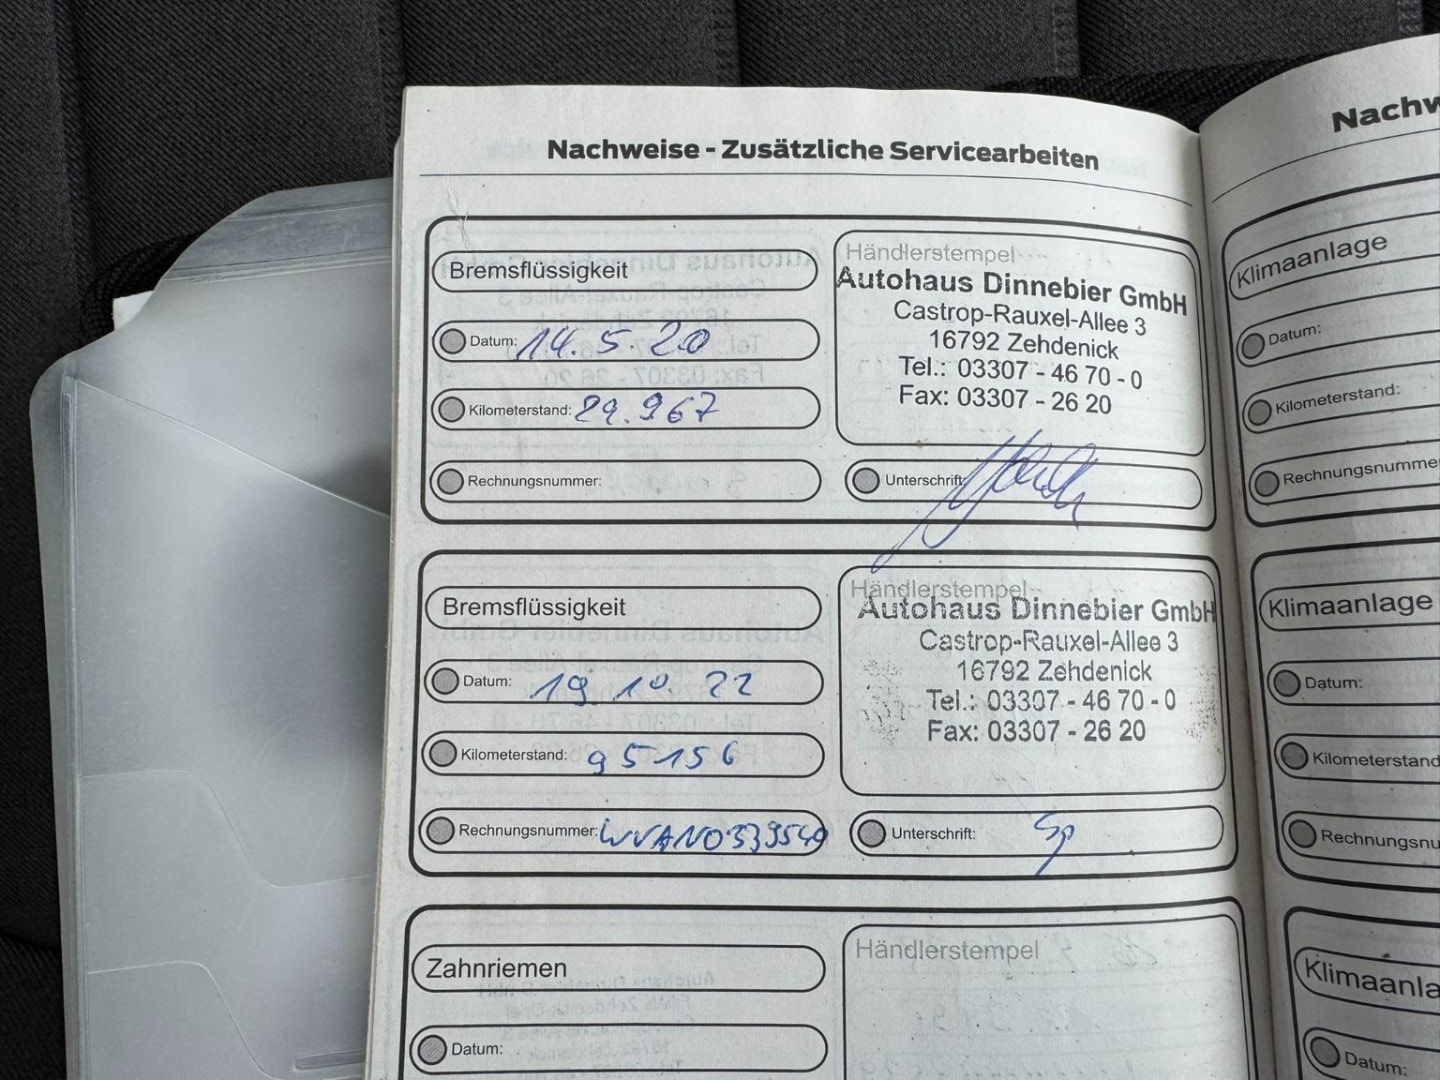 Nachweise - Zusätzliche Servicearbeiten
Bremsflüssigkeit
Datum: 14.5.20
Kilometerstand: 29.967
Rechnungsnummer:
Händlerstempel
Autohaus Dinnebier GmbH
Castrop-Rauxel-Allee 3
16792 Zehdenick
Tel.: 03307 - 46 70 - 0
Fax: 03307 - 26 20
Unterschrift:
Bremsflüssigkeit
Datum: 19 10. 22
Kilometerstand: 95156
Rechnungsnummer: WVANO339549
Händlerstempel
Autohaus Dinnebier GmbH
Castrop-Rauxel-Allee 3
16792 Zehdenick
Tel.: 03307 - 46 70 - 0
Fax: 03307 - 26 20
Unterschrift: Sp
Zahnriemen
Datum:
Händlerstempel
Nachw
Klimaanlage
Datum:
Kilometerstand:
Rechnungsnumme
Klimaanlage
Datum:
Kilometerstand
Rechnungsnu
Klimaanla
Datum: